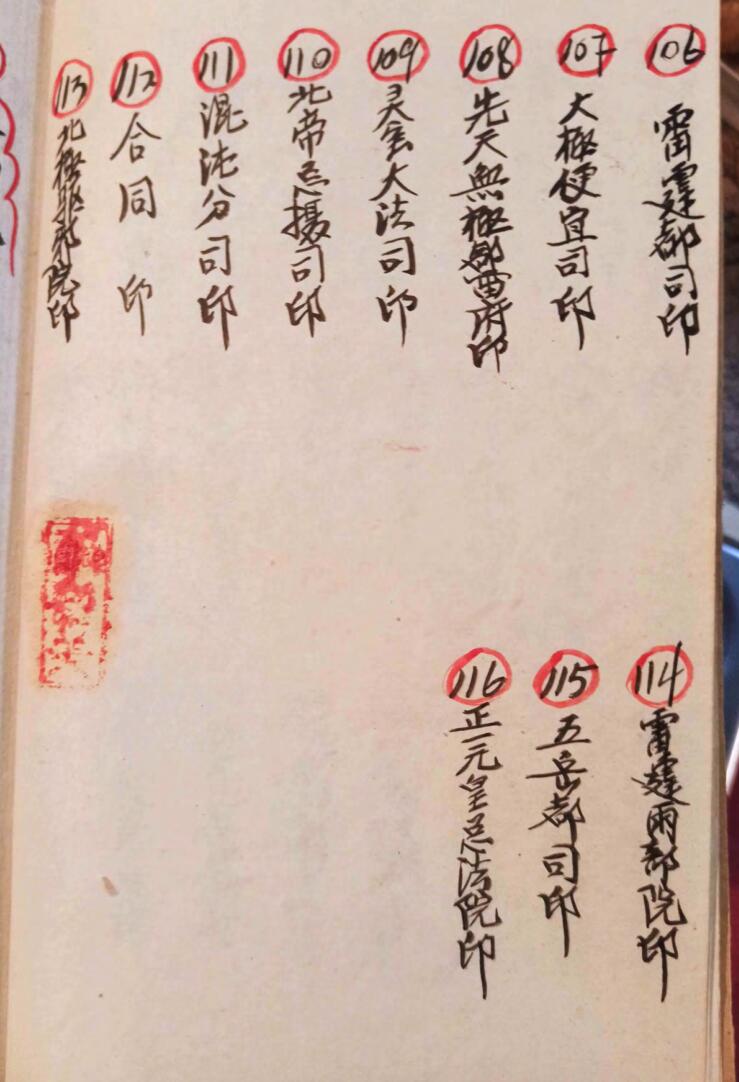 106 雷霆都司印
107 太極便宜司印
108 先天無極都雷府印
109 灵宝大法司印
110 北帝总摄司印
111 混沌分司印
112 合同印
113 北極驱邪院印
114 雷霆兩部院印
115 五岳都司印
116 正一元皇总法院印